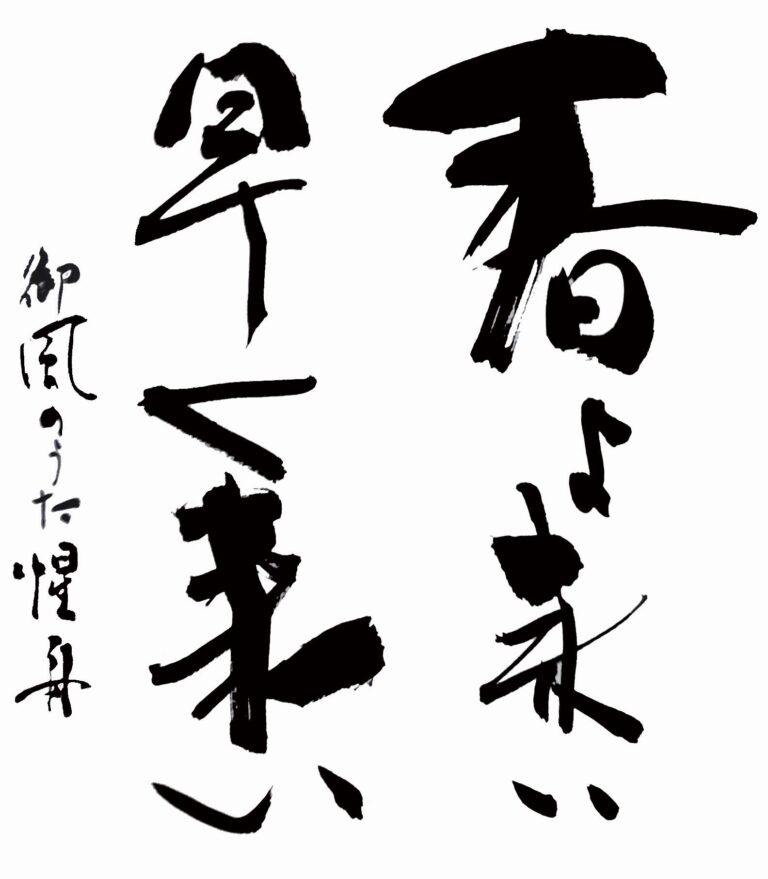 春よ来い
早く来い
御風のうた 惺舟